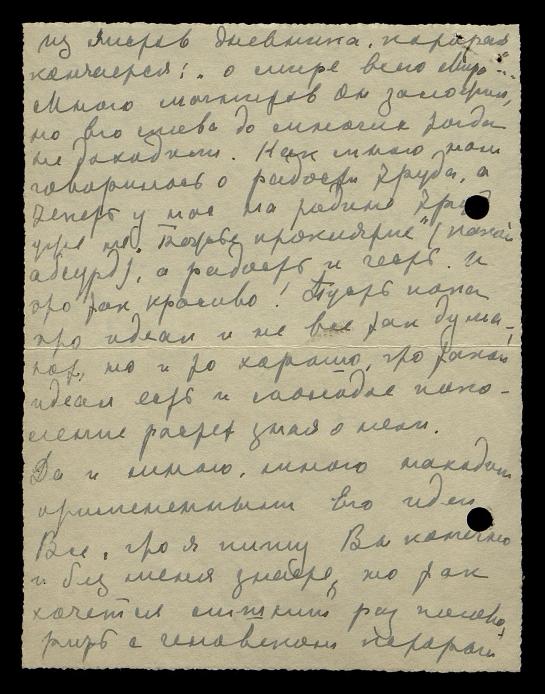 из листов дневника, которая
кончается: "о мире всего Мира".
Много манктиров Он заметил,
но Его слова до многих тогда
не доходили. Как много нам
говорилось о радости труда, а
теперь у нас на родине труд
уже не "Божье проклятие" (какой
абсурд), а радость и честь. И
это так красиво! Пусть пока
это идеал и не все так дума-
ют, но и то хорошо, что такой
идеал есть и молодое поко-
ление растет зная о нем.
Да и много, много находим
примененными Его идеи
Все, что я пишу Вы конечно
и без меня знаете, но так
хочется лишний раз погово-
рить с человеком которой